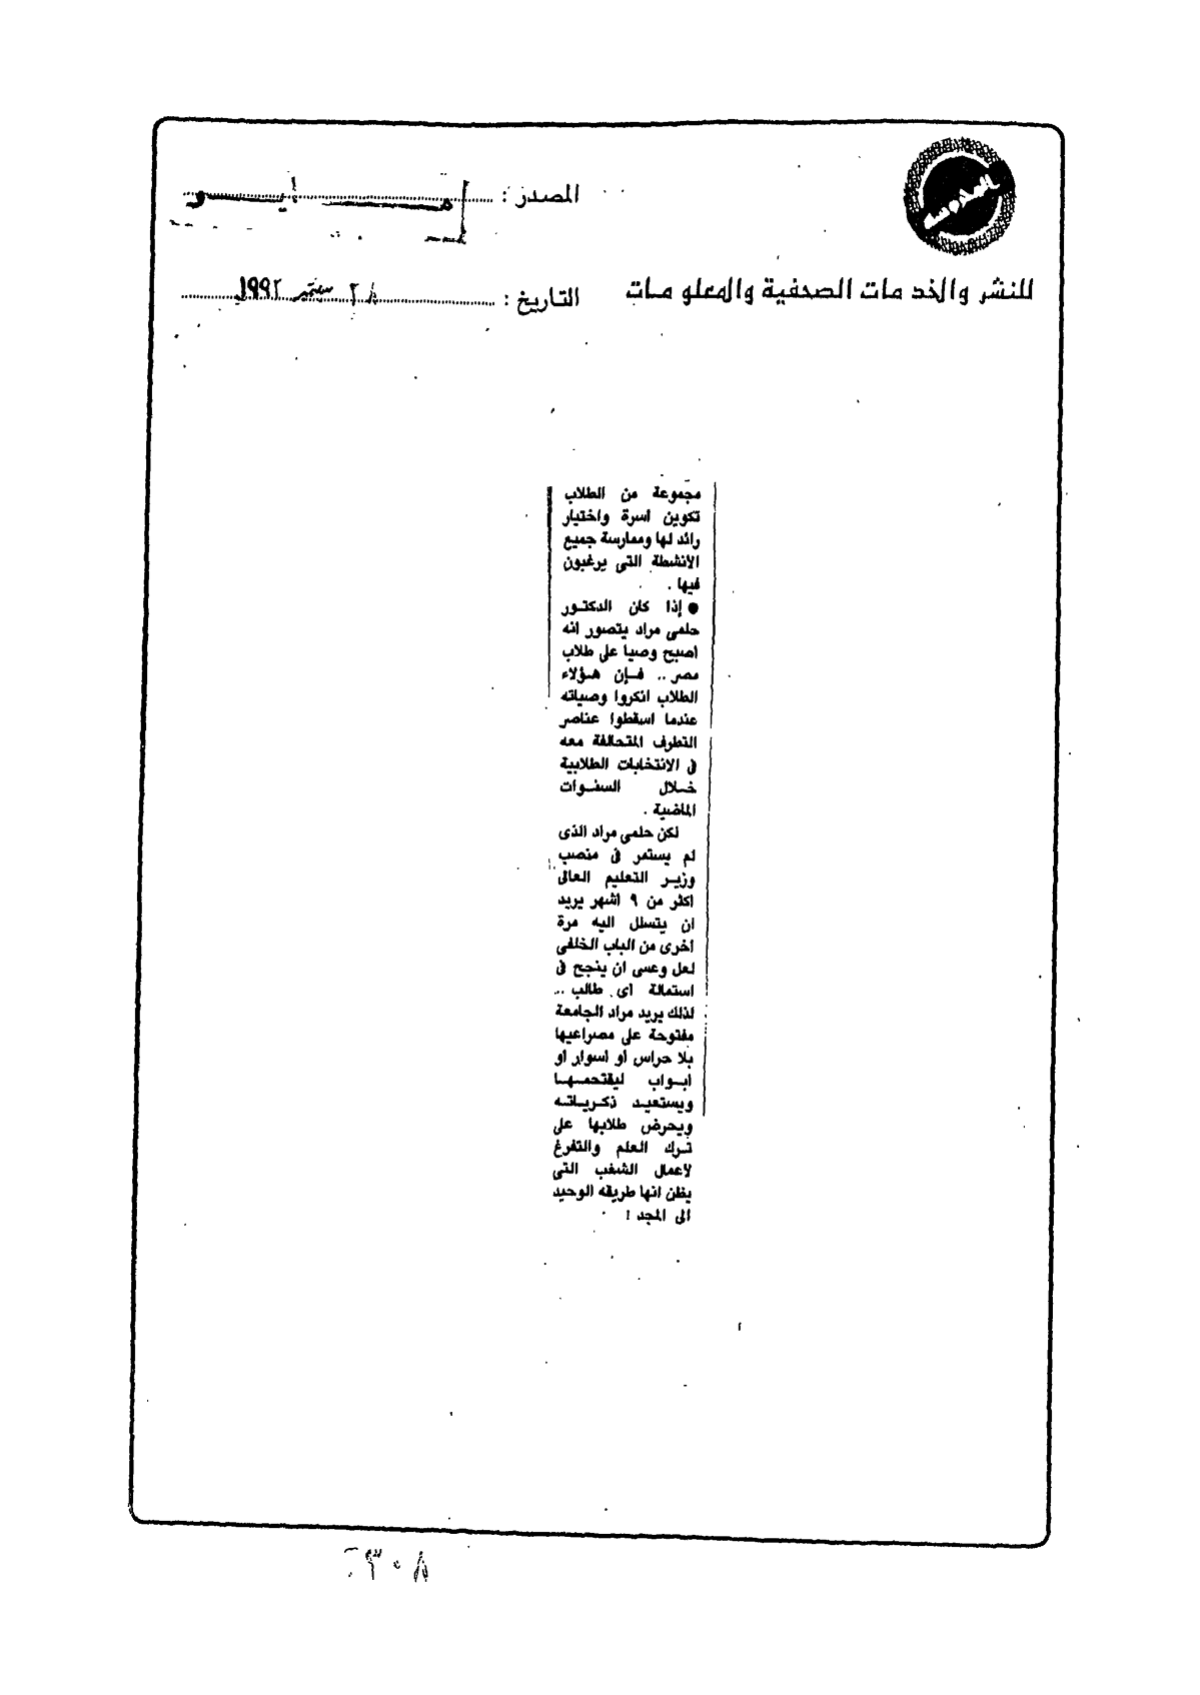 المصدر : مـــايـــو
للنشر والخد مات الصحفية والمعلو مات
التاريخ : ٢٨ سبتمبر ١٩٩٢
مجموعة من الطلاب
تكوين اسرة واختيار
رائد لها وممارسة جميع
الانشطة التى يرغبون
فيها .
● إذا كان الدكتور
حلمى مراد يتصور انه
اصبح وصيا على طلاب
مصر .. فإن هؤلاء
الطلاب انكروا وصياته
عندما اسقطوا عناصر
التطرف المتحالفة معه
فى الانتخابات الطلابية
خلال السنوات
الماضية .
لكن حلمى مراد الذى
لم يستمر فى منصب
وزير التعليم العالى
اكثر من ٩ اشهر يريد
ان يتسلل اليه مرة
اخرى من الباب الخلفى
لعل وعسى ان ينجح فى
استمالة اى طالب ..
لذلك يريد مراد الجامعة
مفتوحة على مصراعيها
بلا حراس أو اسوار او
ابواب ليقتحمها
ويستعيد ذكرياته
ويحرض طلابها على
ترك العلم والتفرغ
لاعمال الشغب التى
يظن انها طريقه الوحيد
الى المجد !